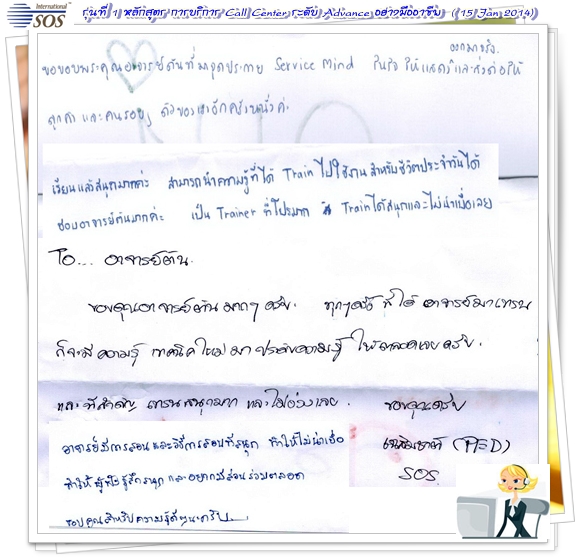 International
SOS
รุ่นที่ 1 หลักสูตร การบริการ Call Center ระดับ Advance อย่างมืออาชีพ ( 15 Jan 2014)
ออกมาจริง
ขอขอบพระคุณอาจารย์ต้นที่มาจุดประกาย Service Mind ในใจ ให้แสดง และส่งต่อให้
ลูกค้า และคนรอบๆ ตัวของเราอีกครั้งหนึ่งค่ะ
เรียนแล้วสนุกมากค่ะ สามารถนำความรู้ที่ได้ Train ไปใช้งาน สำหรับชีวิตประจำวันได้
ชอบอาจารย์ต้นมากค่ะ เป็น Trainer ที่โปรมาก Train ได้สนุกและไม่น่าเบื่อเลย
To... อาจารย์ต้น.
ขอบคุณอาจารย์ต้น มากๆ ครับ. ทุกๆครั้ง ที่ได้ อาจารย์มาเทรน
ก็จะมีความรู้ เทคนิคใหม่ มา ประดับความรู้ ให้ตลอดเลยครับ.
และ ที่สำคัญ เทรนสนุกมาก และไม่ง่วงเลย. ขอบคุณครับ
(PED)
SOS.
อาจารย์มีการสอน และวิธีการสอนที่สนุก ทำให้ไม่น่าเบื่อ
ทำให้ผู้ฟังรู้สึกสนุก และอยากมีส่วนร่วมตลอด
ขอบคุณสำหรับความรู้ดีๆนะครับ